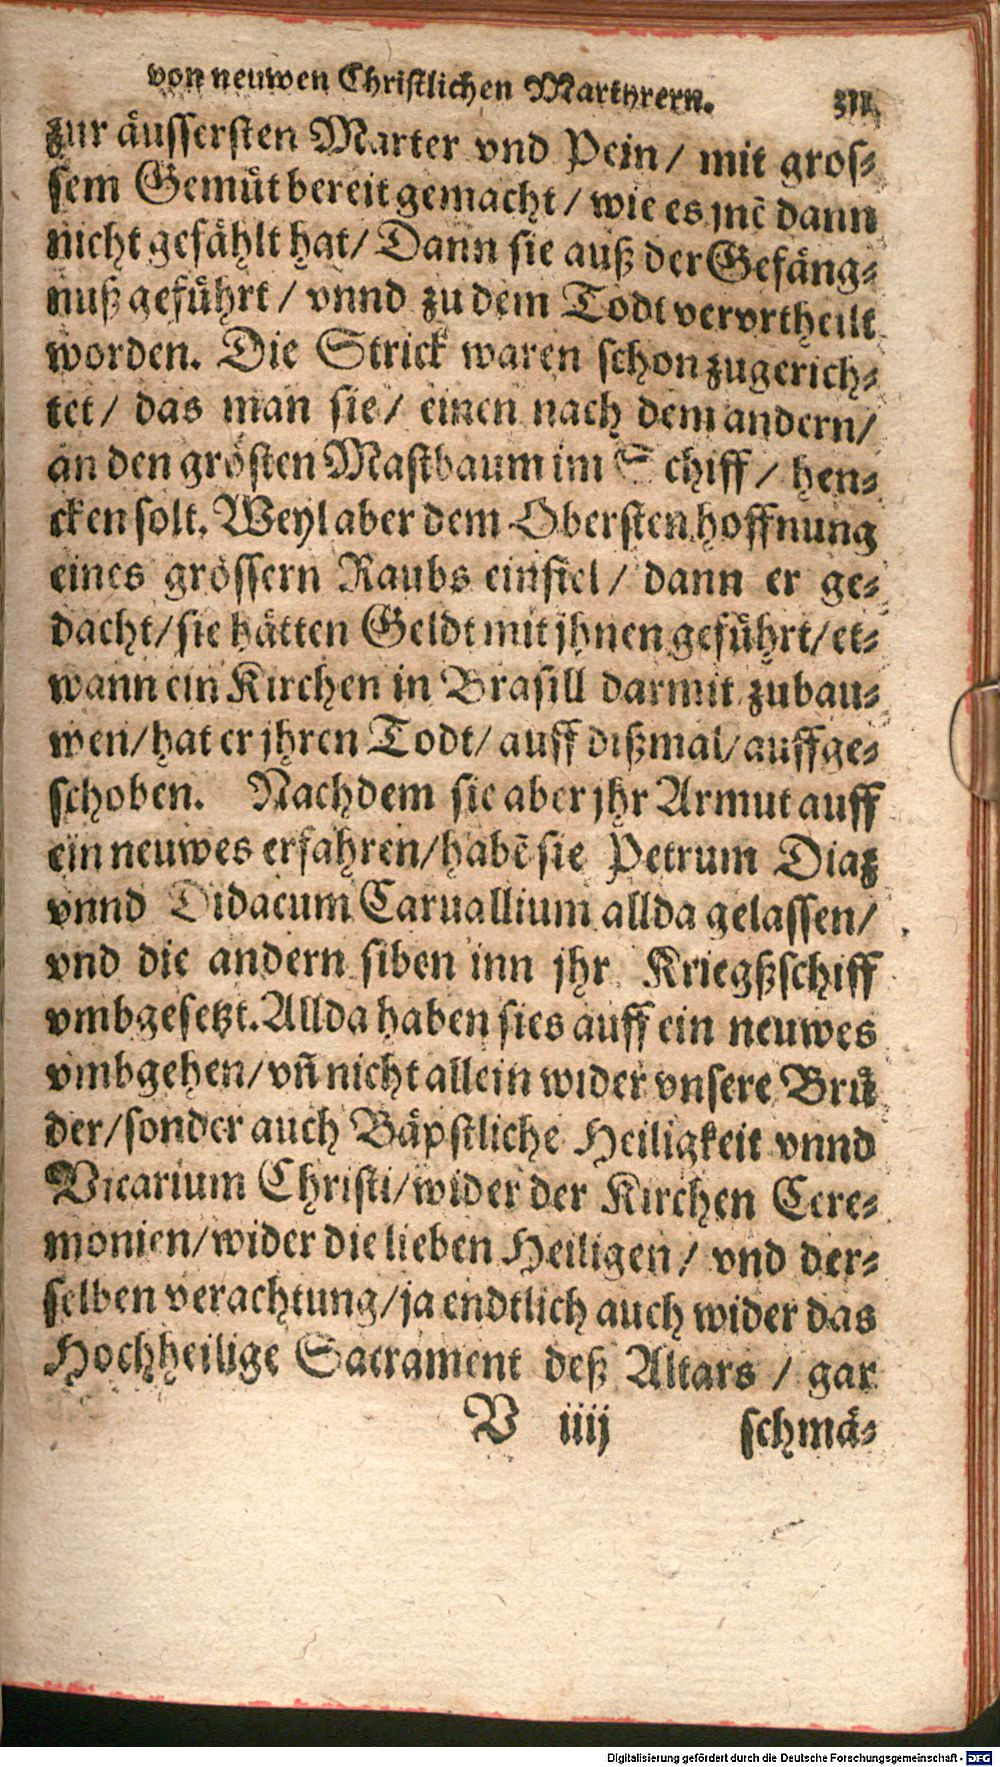 von neuwen Christlichen Martyrern. 311
zur äussersten Marter vnd Pein / mit gros⸗
sem Gemüt bereit gemacht / wie es jnẽ dann
nicht gefählt hat / Dann sie auß der Gefäng⸗
nuß geführt / vnnd zu dem Todt vervrtheilt
worden. Die Strick waren schon zugerich⸗
tet / das man sie / einen nach dem andern /
an den grösten Mastbaum im Schiff / hen⸗
cken solt. Weyl aber dem Obersten hoffnung
eines grössern Raubs einfiel / dann er ge⸗
dacht / sie hätten Geldt mit jhnen geführt / et⸗
wann ein Kirchen in Brasill darmit zubau⸗
wen / hat er jhren Todt / auff dißmal / auffge⸗
schoben. Nachdem sie aber jhr Armut auff
ein neuwes erfahren / habẽ sie Petrum Diaz
vnnd Didacum Caruallium allda gelassen /
vnd die andern siben inn jhr Kriegßschiff
vmbgesetzt. Allda haben sies auff ein neuwes
vmbgehen / vñ nicht allein wider vnsere Brü
der / sonder auch Bäpstliche Heiligkeit vnnd
Vicarium Christi / wider der Kirchen Cere⸗
monien / wider die lieben Heiligen / vnd der⸗
selben verachtung / ja endtlich auch wider das
Hochheilige Sacrament deß Altars / gar
V iiij schmä⸗
Digitalisierung gefördert durch die Deutsche Forschungsgemeinschaft - DFG